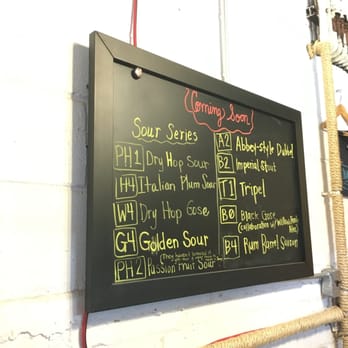 Coming Soon
Sour Series
PH1 Dry Hop Sour
H4 Italian Plum Sour
W4 Dry Hop Gose
G4 Golden Sour
PH2 Passion Fruit Sour
A2 Abbey-style Dubbel
B2 Imperial Stout
T1 Tripel
B0 Black Gose
(collaboration w/
B4 Rum Barrel Saison